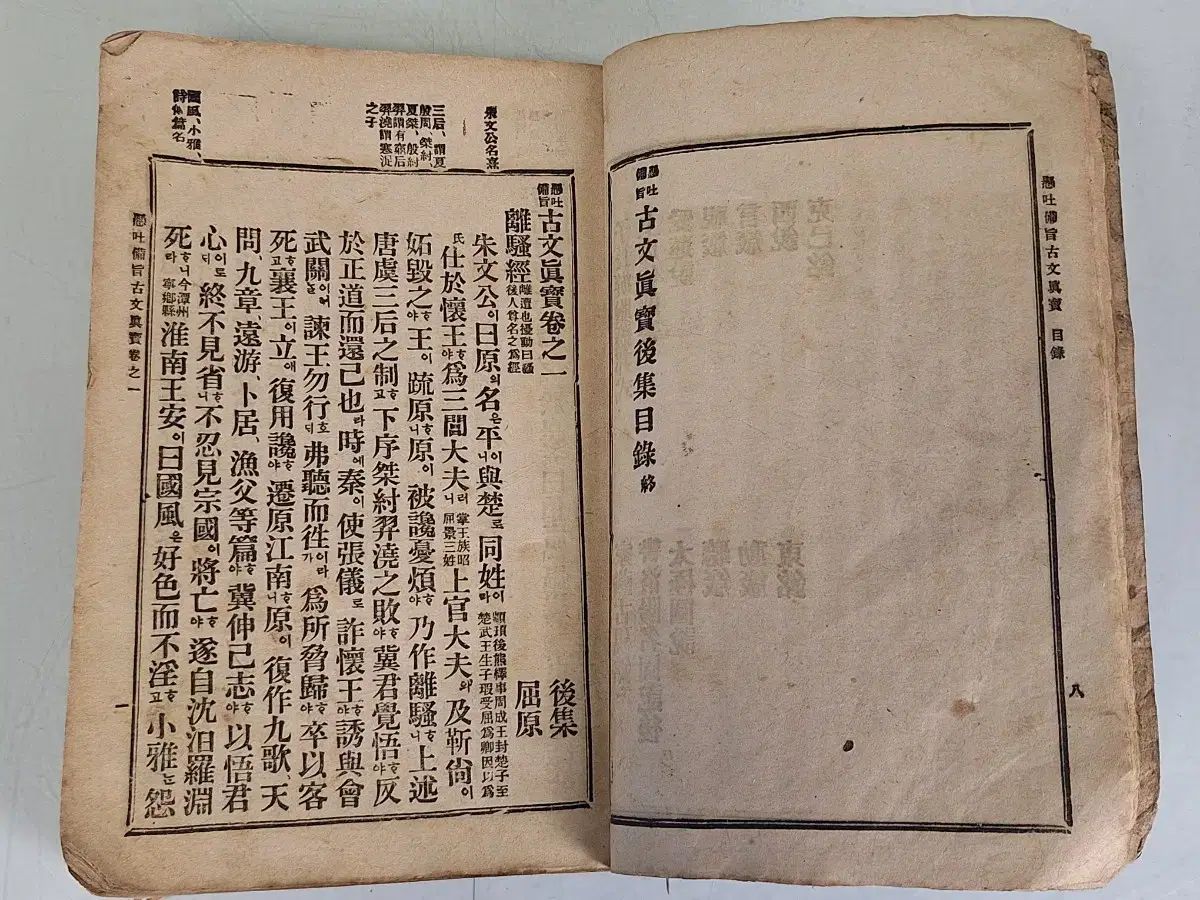 懸吐備旨古文眞寶 目錄 八
懸吐備旨古文眞寶後集目錄 終
朱文公名熹
三后、謂夏
殷周、桀紂、
夏桀、殷紂
羿謂有窮后
羿澆謂寒浞
之子
國風、小雅、
詩係篇名
懸吐備旨古文眞寶卷之一 後集
離騷經 離遭也擾動曰騷後人尊名之爲經 屈原
朱文公이曰原의名은平이니與楚로同姓이라 顓頊後熊繹事周成王封楚子至楚武王生子瑕受屈爲卿因以爲
氏 仕於懷王ᄒᆞ야爲三閭大夫러니 掌王族昭屈景三姓 上官大夫와及靳尙이
妬毀之ᄒᆞ야王이疏原ᄒᆞ니原이被讒憂煩ᄒᆞ야乃作離騷ᄒᆞ니上述
唐虞三后之制ᄒᆞ고下序桀紂羿澆之敗ᄒᆞ야冀君覺悟ᄒᆞ야反
於正道而還己也라時에秦이使張儀로詐懷王ᄒᆞ야誘與會
武關이어ᄂᆞᆯ諫王勿行호ᄃᆡ弗聽而徃이라가爲所脅歸ᄒᆞ야卒以客
死ᄒᆞ고襄王이立애復用讒ᄒᆞ야遷原江南ᄒᆞ니原이復作九歌、天
問、九章、遠游、卜居、漁父等篇ᄒᆞ야冀伸己志ᄒᆞ야以悟君
心이로ᄃᆡ終不見省ᄒᆞ니不忍見宗國이將亡ᄒᆞ야遂自沈汨羅淵
死ᄒᆞ니라 今潭州寧鄕縣 淮南王安이曰國風은好色而不淫ᄒᆞ고小雅ᄂᆞᆫ怨
懸吐備旨古文眞寶卷之一 一